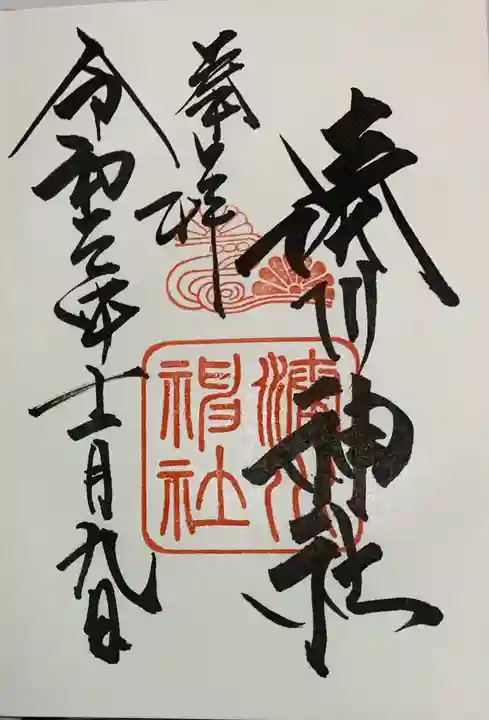 湊川神社
奉拝
令和元年十一月九日
湊川
神社